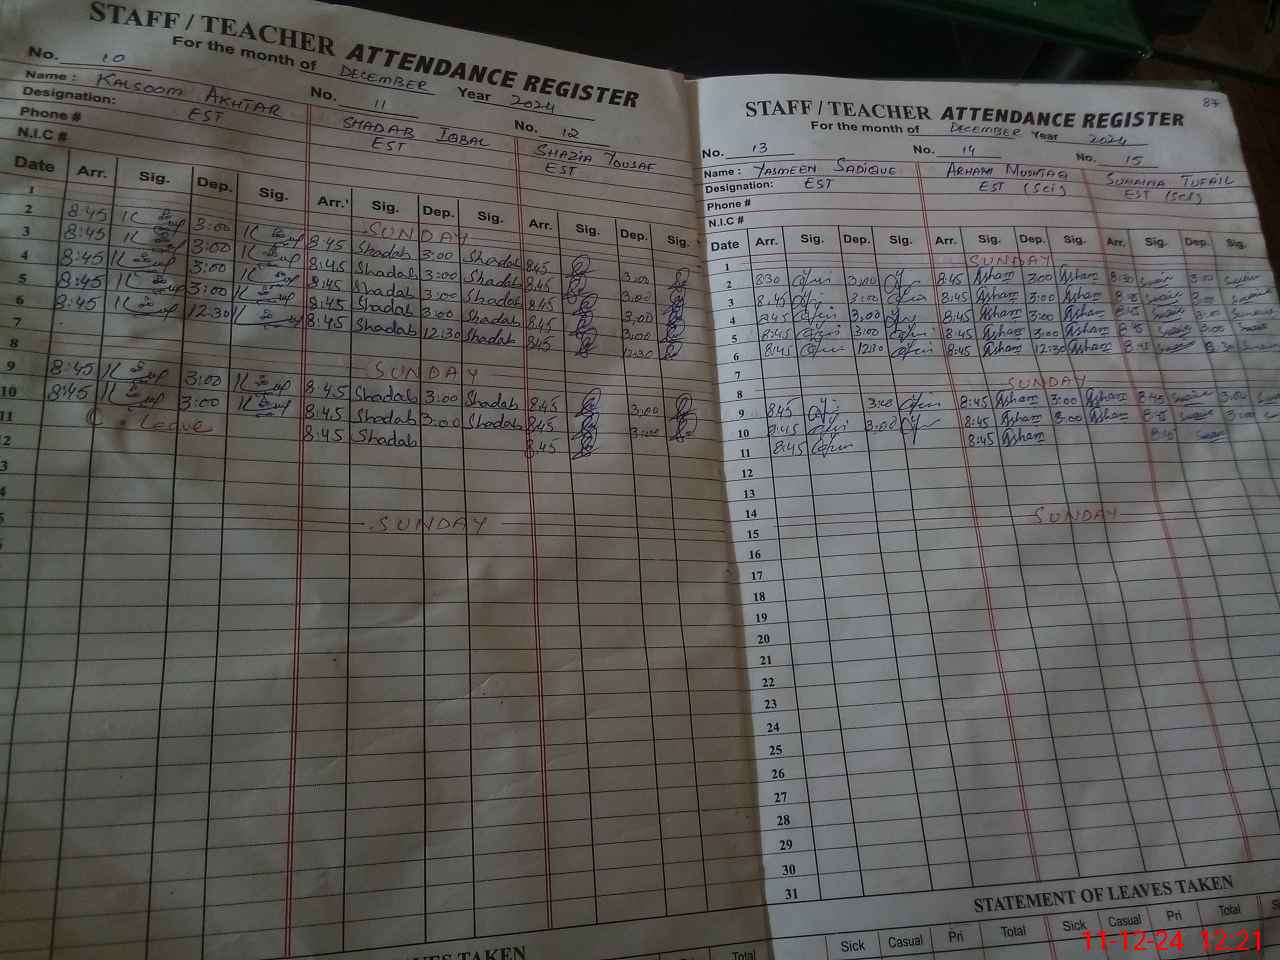 STAFF / TEACHER ATTENDANCE REGISTER
For the month of DECEMBER Year 2024
No. 10 No. 11 No. 12
Name : KALSOOM AKHTAR SHADAB IQBAL SHAZIA YOUSAF
Designation: EST EST EST
Phone #
N.I.C #
Date Arr. Sig. Dep. Sig. Arr. Sig. Dep. Sig. Arr. Sig. Dep. Sig.
1 SUNDAY
2 8:45 3:00 8:45 Shadab 3:00 Shadab 8:45 3:00
3 8:45 3:00 8:45 Shadab 3:00 Shadab 8:45 3:00
4 8:45 3:00 8:45 Shadab 3:00 Shadab 8:45 3:00
5 8:45 3:00 8:45 Shadab 3:00 Shadab 8:45 3:00
6 8:45 12:30 8:45 Shadab 12:30 Shadab 8:45 12:30
7
8 SUNDAY
9 8:45 3:00 8:45 Shadab 3:00 Shadab 8:45 3:00
10 8:45 3:00 8:45 Shadab 3:00 Shadab 8:45 3:00
11 C. Leave 8:45 Shadab 8:45
2
3
4
5 SUNDAY
LEAVES TAKEN
Total
87
STAFF / TEACHER ATTENDANCE REGISTER
For the month of DECEMBER Year 2024
No. 13 No. 14 No. 15
Name : YASMEEN SADIQUE ARHAM MUSHTAQ SUMAIRA TUFAIL
Designation: EST EST (Sci) EST (Sci)
Phone #
N.I.C #
Date Arr. Sig. Dep. Sig. Arr. Sig. Dep. Sig. Arr. Sig. Dep. Sig.
1 SUNDAY
2 8:30 3:00 8:45 Arham 3:00 Arham 8:30 3:00
3 8:45 3:00 8:45 Arham 3:00 Arham 8:45 3:00
4 8:45 3:00 8:45 Arham 3:00 Arham 8:45 3:00
5 8:45 3:00 8:45 Arham 3:00 Arham 8:45 3:00
6 8:45 12:30 8:45 Arham 12:30 Arham 8:45
7
8 SUNDAY
9 8:45 3:00 8:45 Arham 3:00 Arham 8:45 3:00
10 8:45 3:00 8:45 Arham 3:00 Arham 8:45 3:00
11 8:45 8:45 Arham 8:45
12
13
14
15 SUNDAY
16
17
18
19
20
21
22
23
24
25
26
27
28
29
30
31
STATEMENT OF LEAVES TAKEN
Sick Casual Pri Total Sick Casual Pri Total
11-12-24 12:21